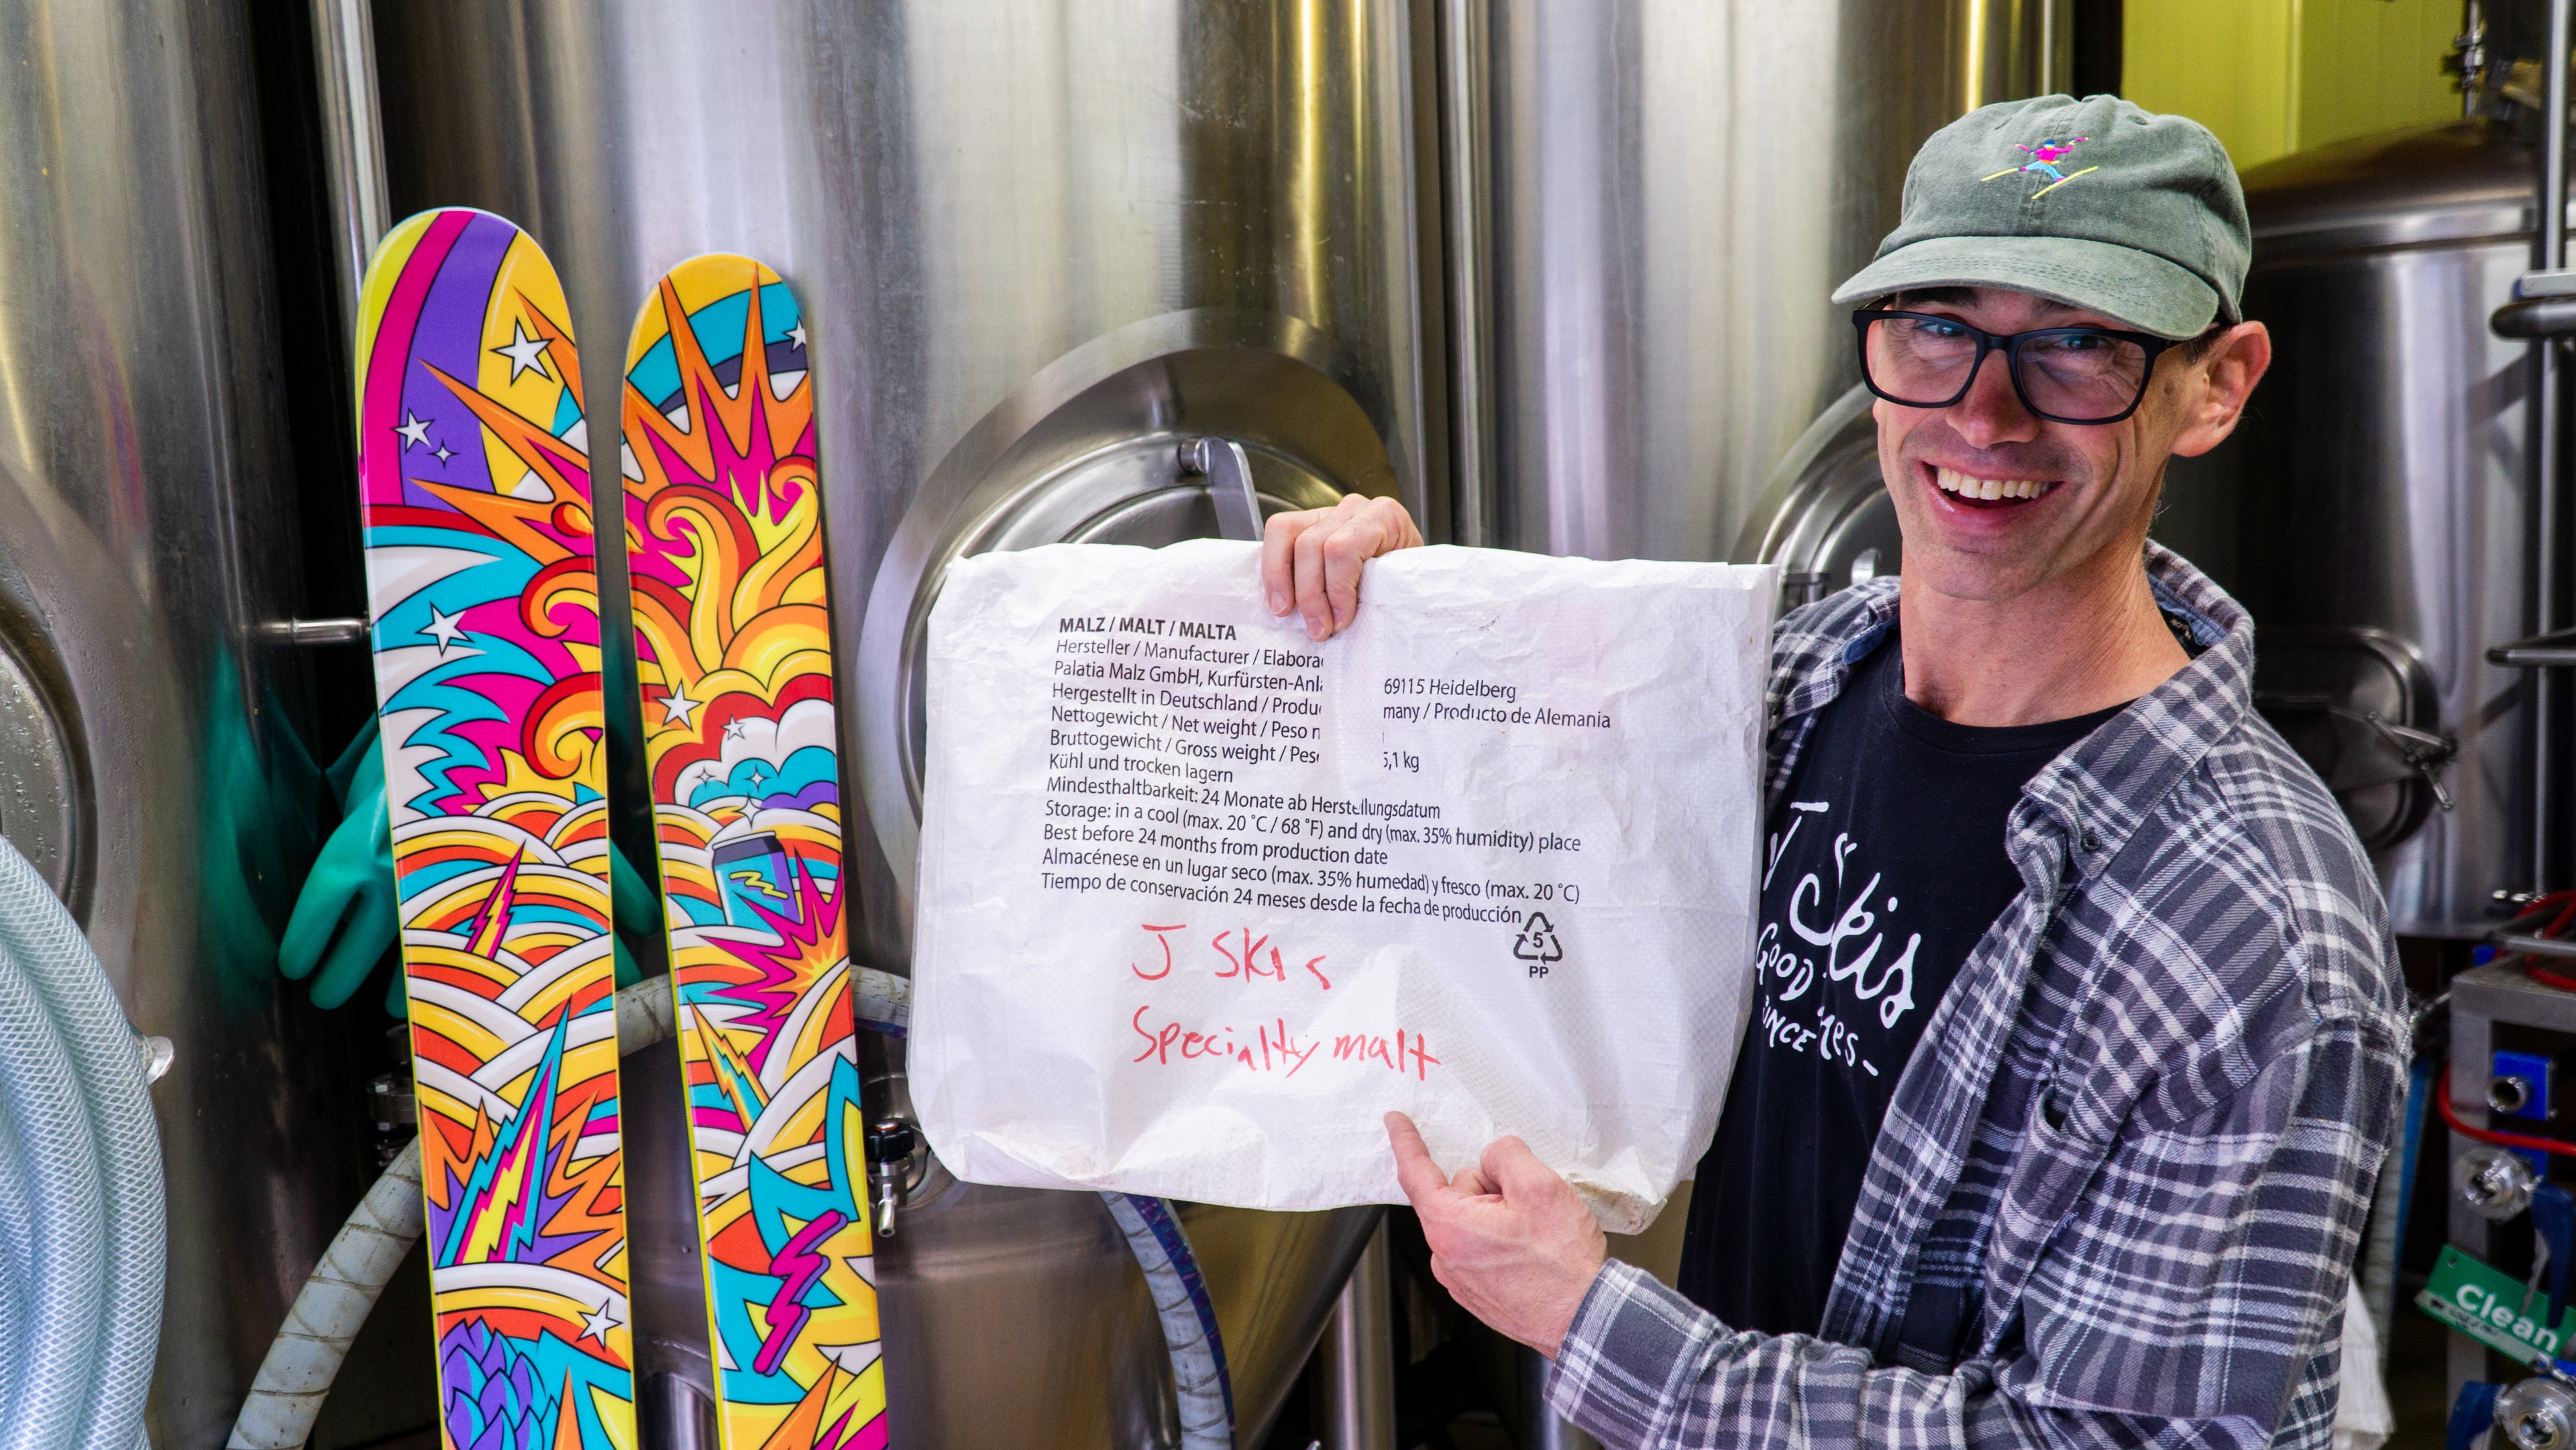 MALZ / MALT / MALTA
Hersteller / Manufacturer /
Palatia Malz GmbH, 69115 Heidelberg
Hergestellt in Deutschland / / Producto de Alemania
Nettogewicht / Net weight / Peso
Bruttogewicht / Gross weight / 5,1 kg
Kühl und trocken lagern
Mindesthaltbarkeit: 24 Monate ab Herstellungsdatum
Storage: in a cool (max. 20 °C / 68 °F) and dry (max. 35% humidity) place
Best before 24 months from production date
Almacénese en un lugar seco (max. 35% humedad) y fresco (max. 20 °C)
Tiempo de conservación 24 meses desde la fecha de producción
5
PP
J SKIs
Specialty malt
J Skis
GOOD
SINCE
Clean